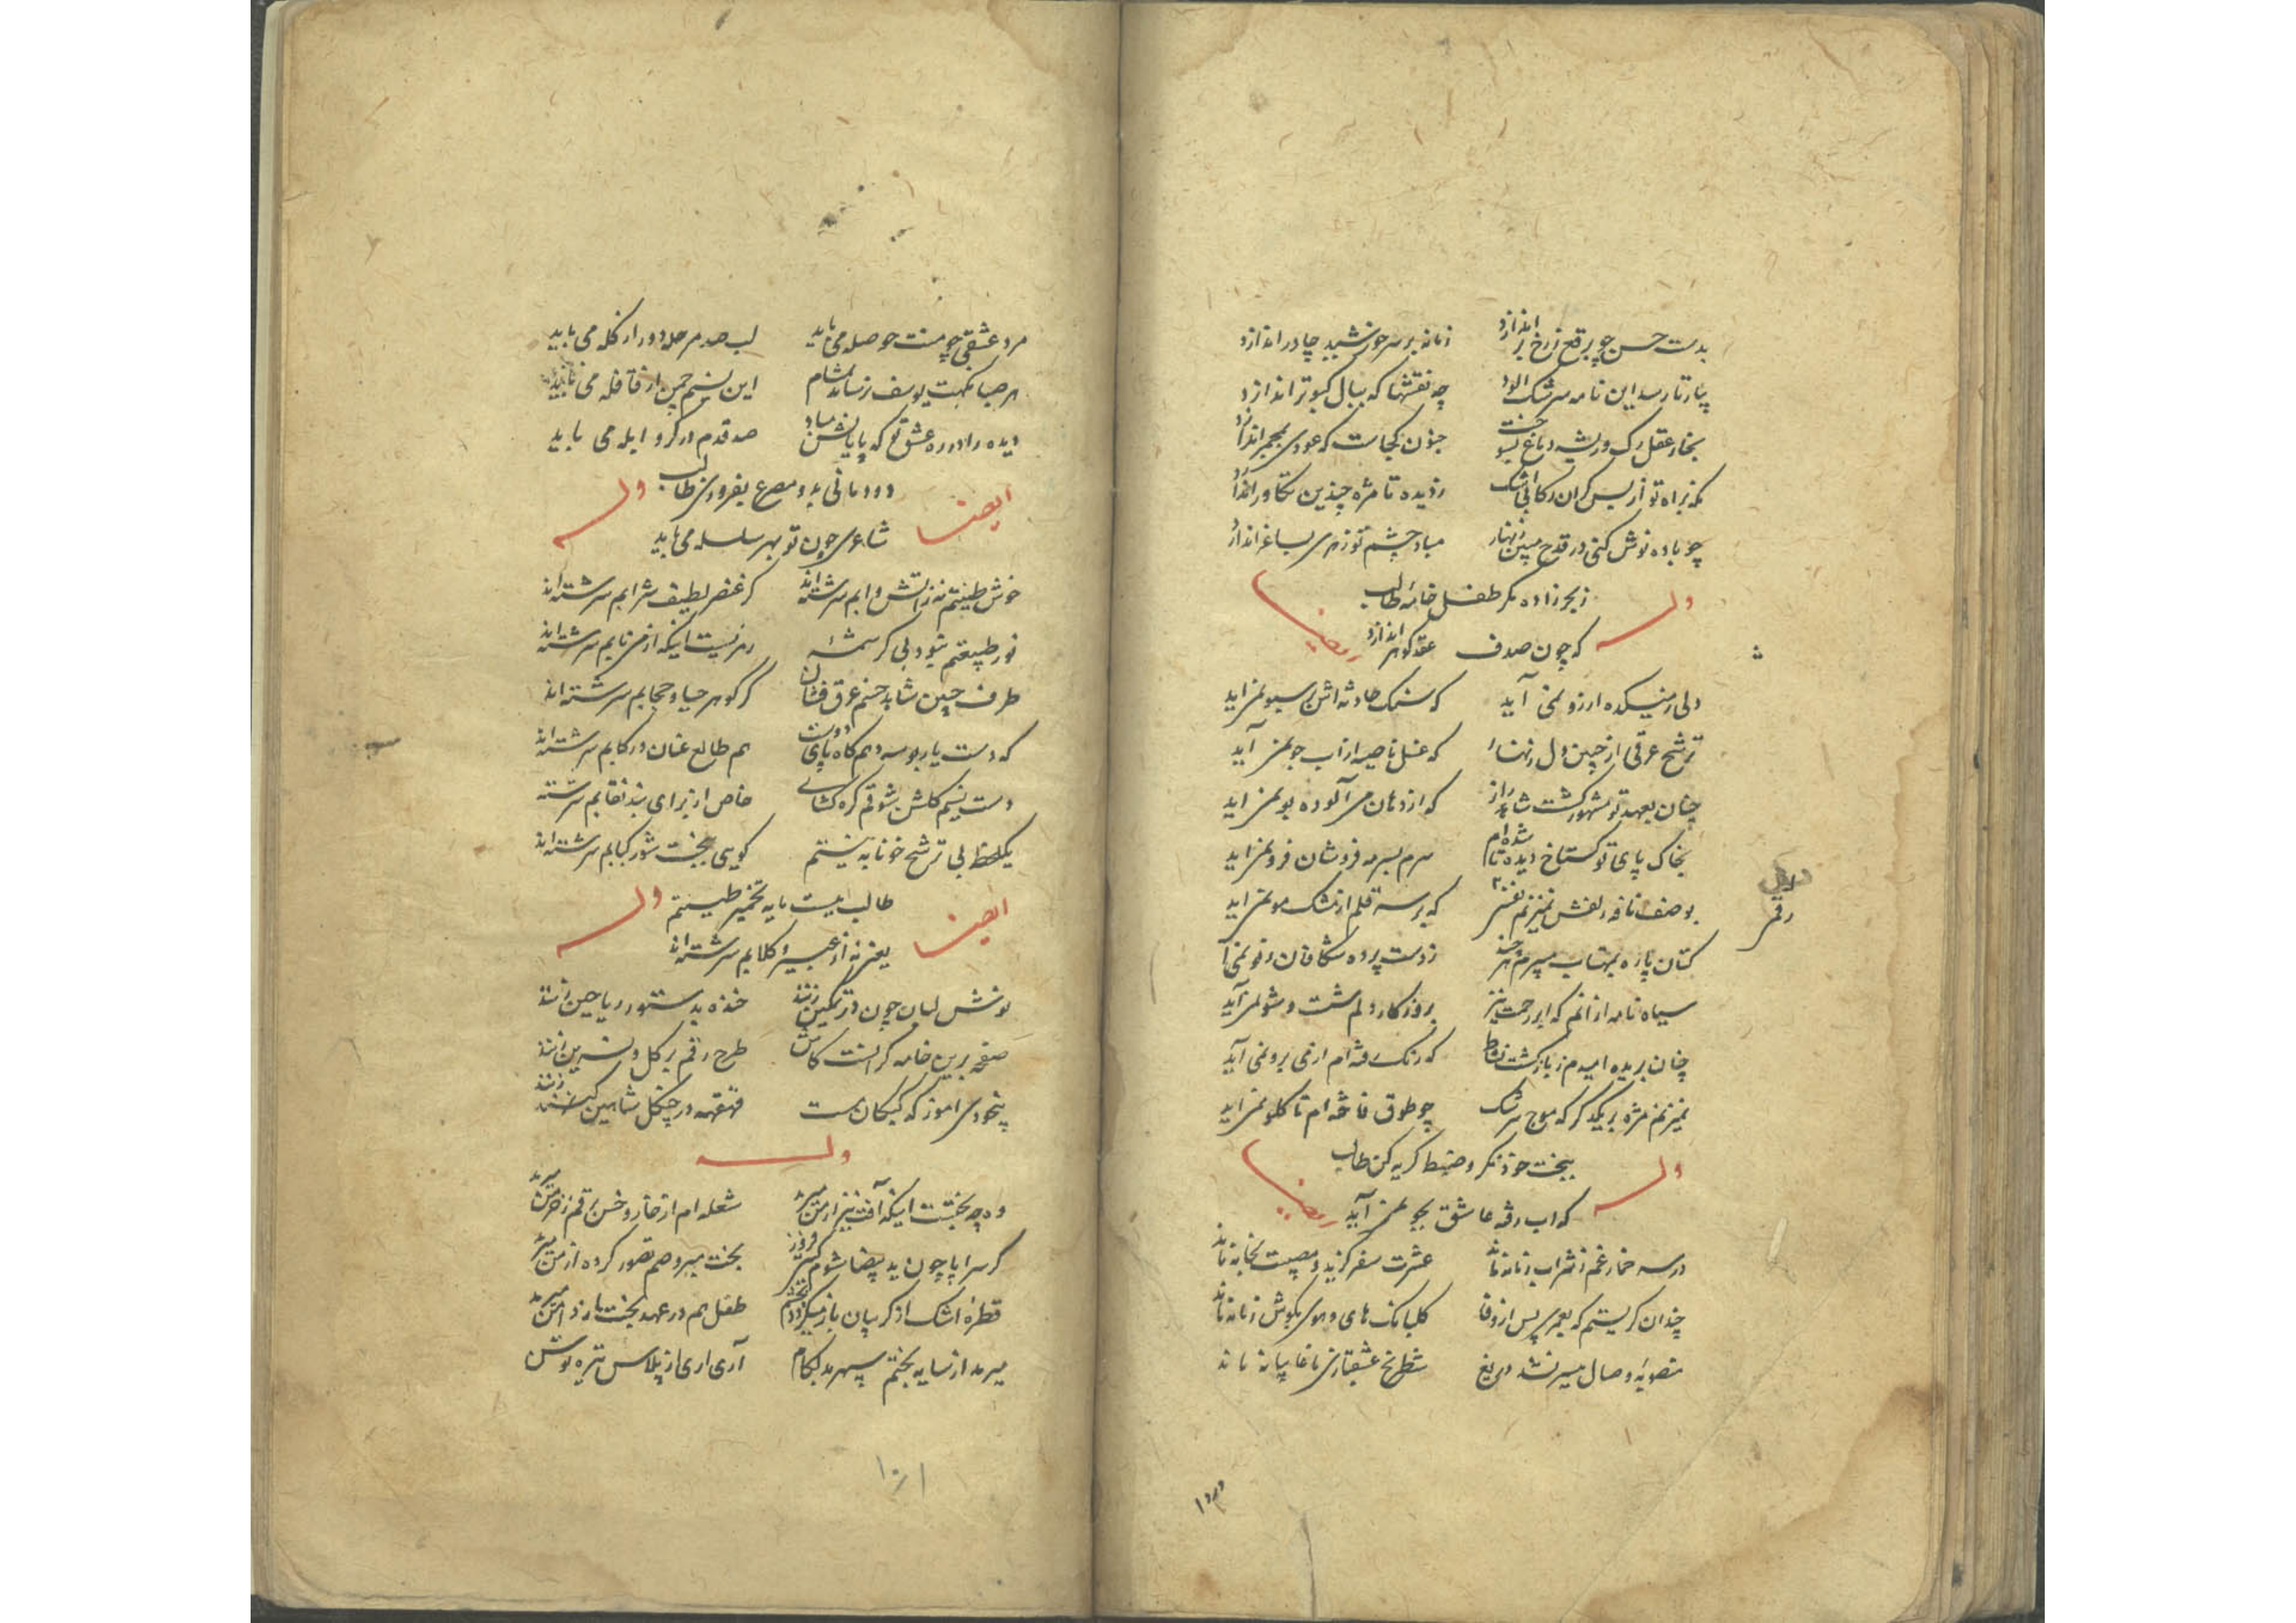 بدست حسن چو برقع ز رخ بر اندازد زمانه بر سر خورشید چادر اندازد
بیار تا رسد این نامه سرشک الود چه نقشها که ببال کبوتر اندازد
بخار عقل رک و ریشه دماغ بسوخت جنون کجاست که عودی بمجمر اندازد
براه تو از بس کران رکابی اشک ز دیده تا مژه چندین تکاور اندازد
چو باده نوش کنی در قدح مبین زنهار مباد چشم تو زهری بساغر اندازد
وله ز بحر زاده مکر طفل خامه طالب ایضا
که چون صدف عقد کوهر اندازد
دلی ز میکده ارزو نمی آید که سنک حادثه اش بر سبو نمی اید
ترشح عرقی از جبین دل زنهار که غسل ناصیه از اب جو نمی آید
چنان بعهد تو مشهور کشت شاهد راز که از دهان می آلوده بو نمی اید
بخاک پای تو کستاخ دیده تا شده ام سرم بسرمه فروشان فرو نمی اید
بوصف نافه زلفش نمیزنم نفسی که بر سر قلم از مشک مو نمی اید
کتان پاره بمهتاب میبرم هر چند ز دست پرده شکافان رفو نمی آ
سیاه نامه از انم که ابر رحمت نیز بروزکار دلم شست و شو نمی آید
چنان بریده امیدم ز بازکشت نشاط که رنک رفته ام از می برو نمی آید
نمیزنم مژه بر یکدکر که موج سرشک چو طوق فاخته ام تا کلو نمی اید
وله ببخت خود نکر و ضبط کریه کن طالب ایضا
که اب رفته عاشق بجو نمی آید
در سر خمار غم ز شراب زمانه ماند عشرت سفر کزید و مصیبت بخانه ماند
چندان کریستم که بعمری پس از وفا کلبانک های و هوی بکوش زمانه ماند
منصوبه وصال میسر نشد دریغ شطرنج عشقبازی ما غایبانه ماند
رقم
مرد عشقی چو منت حوصله می باید لب صد مرحله دور از کله می باید
هر صبا نکهت یوسف نرساند بمشام این نسیم چمن از قافله می باید
دیده را در ره عشق تو که پایانش مباد صد قدم در کرو ابله می باید
ایضا دودمانی بدو مصرع بفروزی طالب وله
شاعری چون تو بهر سلسله می باید
خوش طینتم نه ز اتش و ابم سرشته اند کز عنصر لطیف شرابم سرشته اند
نور طبیعتم نبود بی کرشمه رمزیست اینکه از می نابم سرشته اند
طرف جبین شاهد حسنم عرق فشان کز کوهر حیا و حجابم سرشته اند
که دست یار بوسه دهم کاه پای دوست هم طالع عنان و رکابم سرشته اند
دست نسیم کلشن شوقم کره کشای خاص از برای بند نقابم سرشته
یکلحظه بی ترشح خونابه نیستم کویی ببخت شور کبابم سرشته اند
ایضا طالب میست مایه تخمیر طینتم وله
یعنی نه از عبیر و کلابم سرشته اند
نوش لبان چون در تمکین زنند خنده بدستور ریاحین زنند
صفحه برین خامه کر انست کاش طرح رقم بر کل و نسرین زنند
بیخودی اموز که کبکان مست قهقهه در چنکل شاهین زنند
وله
وه چه بختست اینکه آفت نیز از من میرمد شعله ام از خار و خس برقم ز خرمن میرمد
کر سراپا چون ید بیضا شوم کیتی فروز بخت میبرد هم تصور کرده از من میرمد
قطره اشک از کریبان باز میکردد بچشم طفل هم در عهد بخت ما ز دامن میرمد
میرمد از سایه بختم سپهر بد لکام آری اری از پلاس تیره توسن